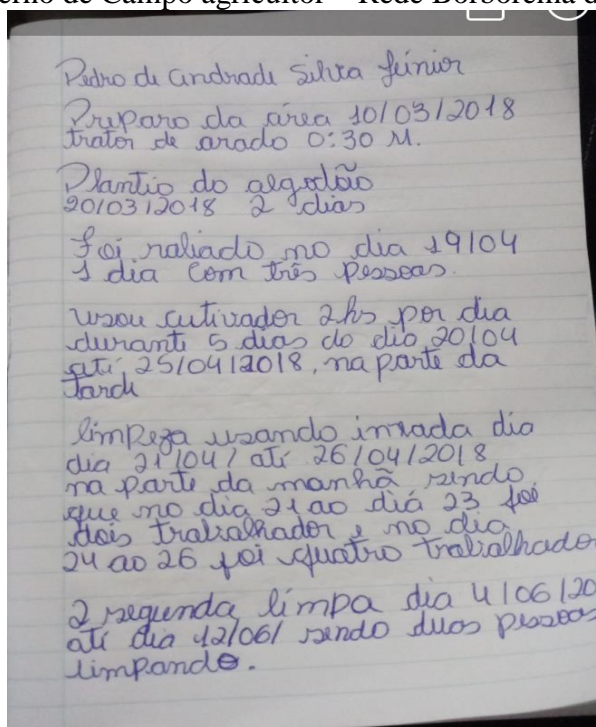 erno de Campo agricultor – Rede Borborema d
Pedro de Andrade Silva Júnior
Preparo da área 10/03/2018
trator de arado 0:30 M.
Plantio do algodão
20/03/2018 2 dias
Foi raliado no dia 19/04
1 dia com três pessoas.
usou cutivador 2hs por dia
durante 5 dias do dia 20/04
até 25/04/2018, na parte da
Tarde
limpeza usando inxada dia
dia 21/04/ até 26/04/2018
na parte da manhã sendo
que no dia 21 ao diá 23 foi
dois trabalhador e no dia
24 ao 26 foi quatro trabalhador
2 segunda limpa dia 4/06/20
até dia 12/06/ sendo duas pessoas
limpando.